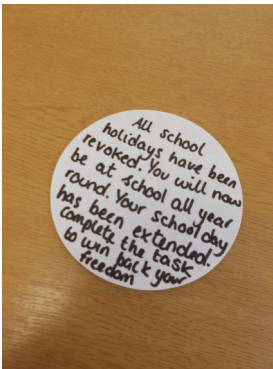 All school
holidays have been
revoked. You will now
be at school all year
round. Your school day
has been extended.
Complete the task
to win back your
freedom